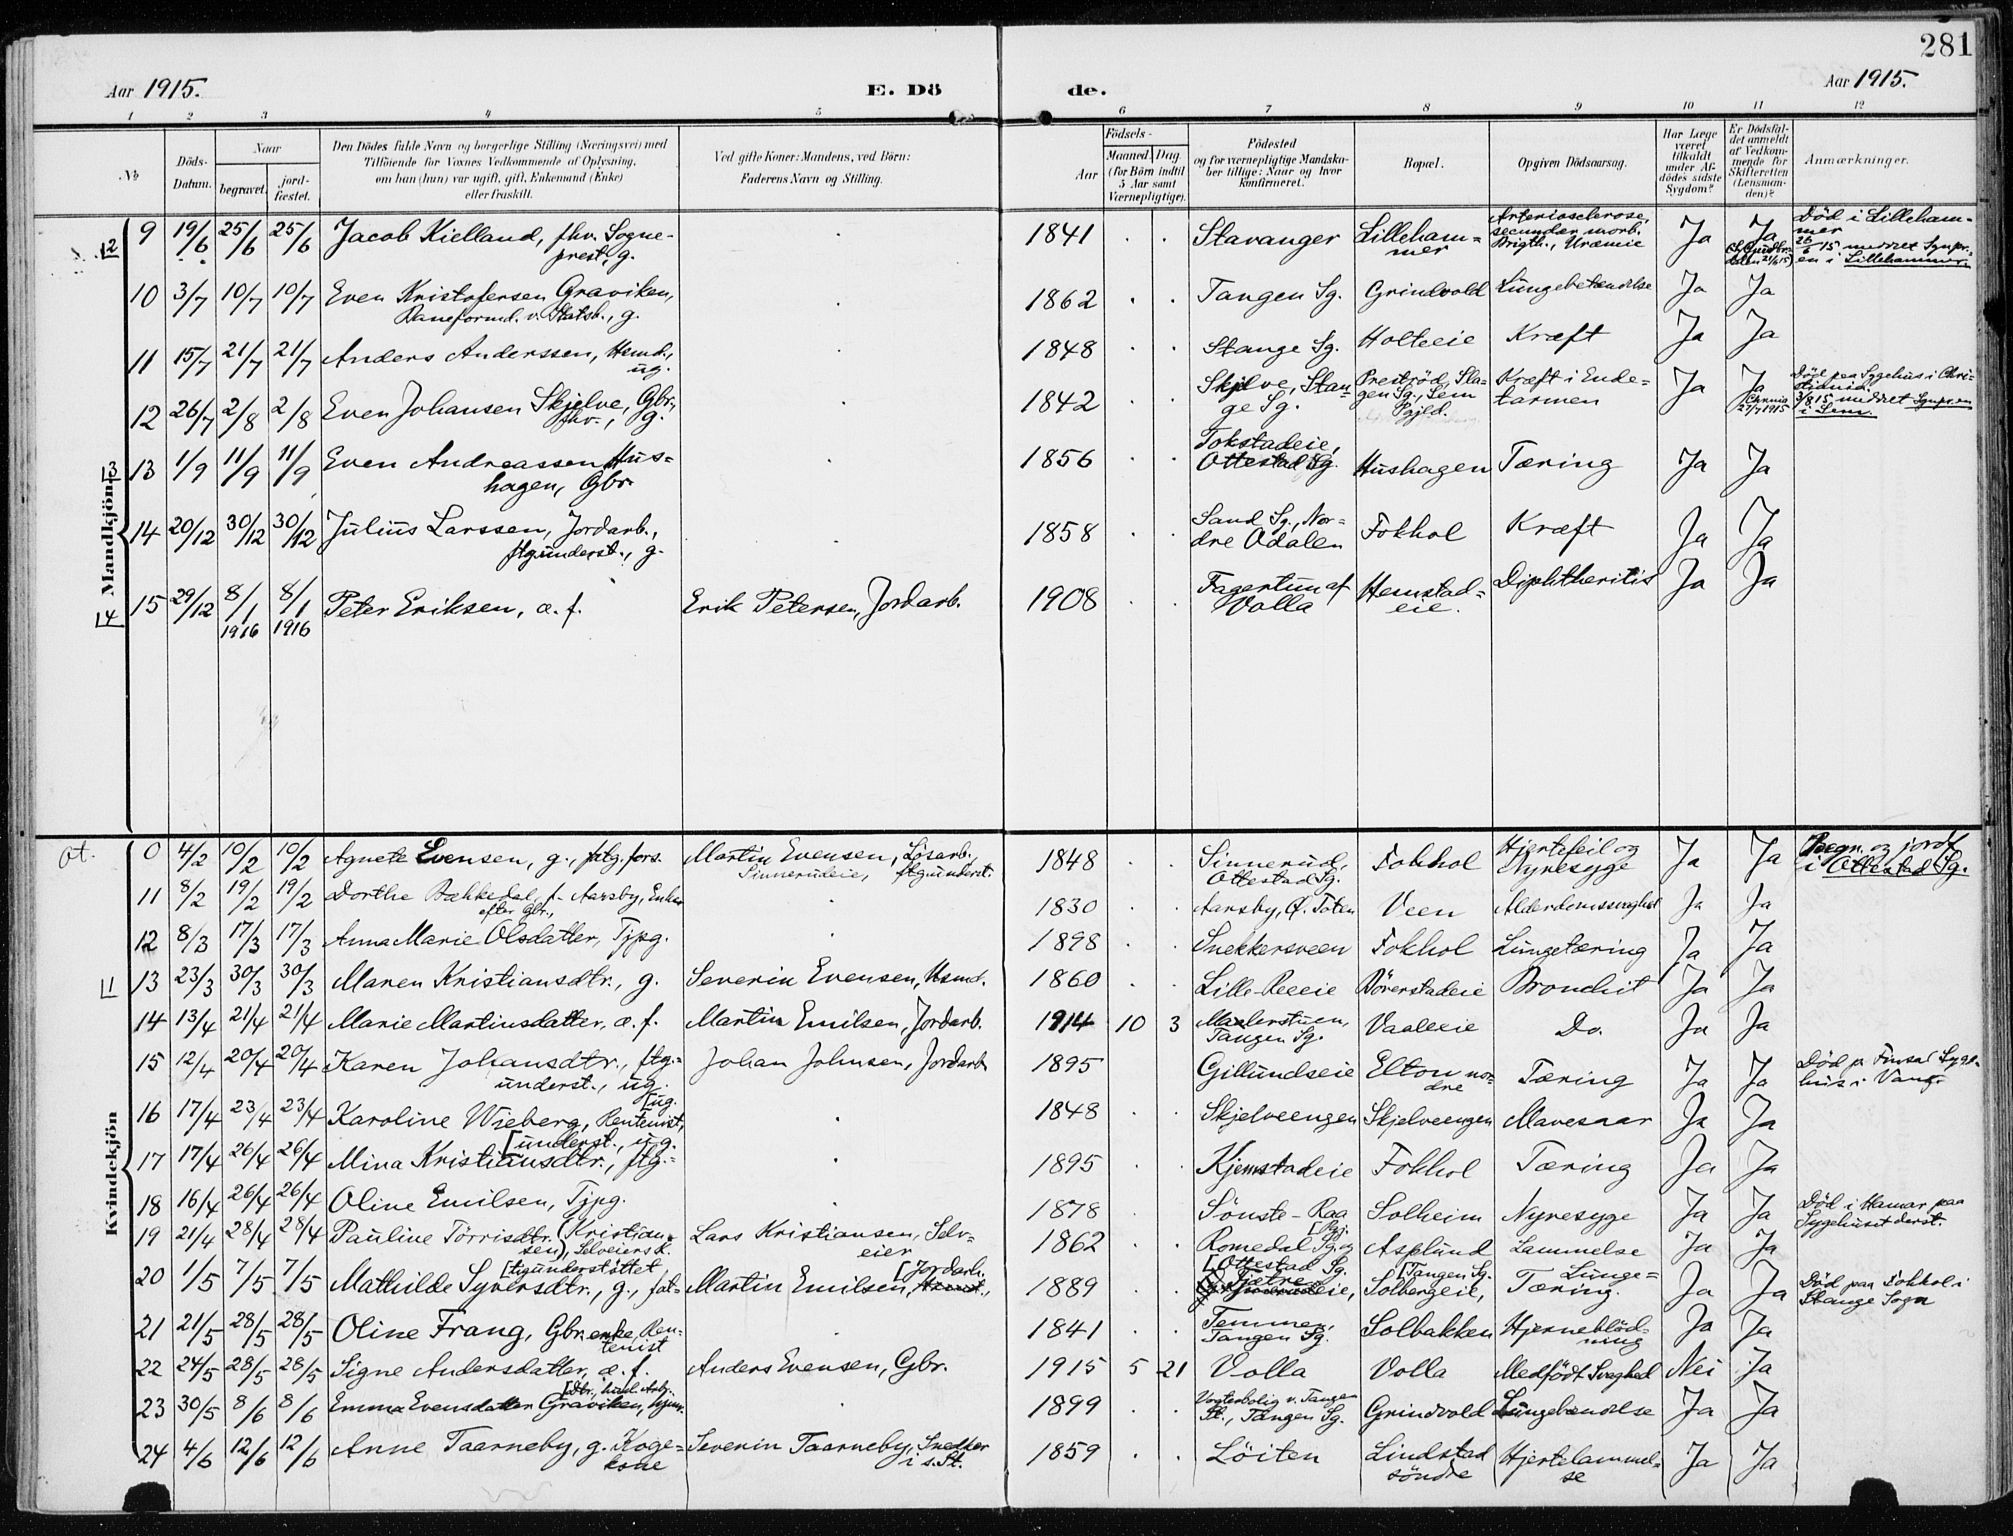 281
Aar 1915.
E. Dö
de.
Aar 1915.
1 2 3 4 5 6 7 8 9 10 11 12
No
Döds-Datum.
Naar
begravet.
jord-fæstet.
Den Dödes fulde Navn og borgerlige Stilling (Næringsvei) med
Tilföiende for Voxnes Vedkommende af Oplysning,
om han (hun) var ugift, gift, Enkemand (Enke)
eller fraskilt.
Ved gifte Koner: Mandens, ved Börn:
Faderens Navn og Stilling.
Födsels-
Aar
Maaned. Dag
(for Börn indtil
5 Aar samt
Værnepligtige).
Födested
og for værnepligtige Mandska-
ber tillige: Naar og hvor
konfirmeret.
Bopæl.
Opgiven Dödsaarsag.
Har Læge
været
tilkaldt
under Af-
dödes sidste
Sygdom?
Er Dödsfal-
det anmeldt
af Vedkom-
mende for
Skifteretten
(Lensman-
den)?
Anmærkninger.
Mandkjön
12
9 19/6 25/6 25/6 Jacob Kielland, fhv. Sogne-
prest, g. 1841 Stavanger Lilleham=
mer Arteriosclerose,
secundær morb.
Brigth., Uræmie Ja Ja Död i Lilleham-
mer
26/6 15 meddelt Sognepr-
en i Lillehammer
10 3/7 10/7 10/7 Even Kristofersen Graviken,
Baneformd. v. Statsb., g. 1862 Tangen Sg. Grindvold Lungebetændelse Ja Ja
11 15/7 21/7 21/7 Anders Anderssen, Hemd.,
ug. 1848 Stange Sg. Holteeie Kræft Ja Ja
12 26/7 2/8 2/8 Even Johansen Skjelve, Gbr.,
fhv., g. 1842 Skjelve, Stan-
ge Sg. Preströd, Sla-
gen Sg., Sem
Pgjld. Kræft i Ende=
tarmen Ja Ja
Chrnia
27/7 1915 Död paa Sygehus i Chri-
stiania.
3/8 15 meddelt Sognpr. en
i Sem.
13
13 1/9 11/9 11/9 Even Andreassen Hus=
hagen, Gbr. 1856 Tokstadeie,
Ottestad Sg. Hushagen Tæring Ja Ja
14 20/12 30/12 30/12 Julius Larssen, Jordarb.,
ftgunderst., g. 1858 Sand Sg., Nor=
dre Odalen Fokhol Kræft Ja Ja
14
15 29/12 8/1 1916 8/1 1916 Peter Eriksen, æ. f. Erik Petersen, Jordarb. 1908 Fagertun af
Volla Hemstad=
eie. Diphtheritis Ja Ja
Kvindekjön
Ot. 0 4/2 10/2 10/2 Agnete Evensen, g., fatg. fors. Martin Evensen, Lösarb.,
Sinnerudeie, ftgunderst. 1848 Sinnerud,
Ottestad Sg. Fokhol Hjertefeil og
Nyresyge Ja Ja Begr. og jordf.
i Ottestad Sg.
11 8/2 19/2 19/2 Dorthe Bækkedal, f. Aarsby, Enke
efter Gbr., 1830 Aarsby, Ö. Toten Veen Alderdomssvaghed Ja Ja
12 8/3 17/3 17/3 Anna Marie Olsdatter, Tjpg. 1898 Snekkersveen Fokhol Lungetæring Ja Ja
11
13 23/3 30/3 30/3 Maren Kristiansdtr., g. Severin Evensen, Husmd. 1860 Lille-Reeeie Börerstadeie Bronchit Ja Ja
14 13/4 21/4 21/4 Marie Martinsdatter, æ. f. Martin Emilsen, Jordarb. 1914 10 3 Malerstuen,
Tangen Sg. Vaaleeie Do. Ja Ja
15 12/4 20/4 20/4 Karen Johansdtr., ftg.=
underst., ug. Johan Johnsen, Jordarb 1895 Gillundseie Elton nor-
dre Tæring Ja Ja Död p. Finsal Syge-
hus i Vang.
16 17/4 23/4 23/4 Karoline Wieberg, Rentenist,
[ug. 1848 Skjelveengen Skjelveengen Mavesaar Ja Ja
17 17/4 26/4 26/4 Mina Kristiansdtr., ftg.=
[underst., ug. 1895 Kjemstadeie Fokhol Tæring Ja Ja
18 16/4 26/4 26/4 Oline Emilsen, Tjpg. 1878 Sönste-Raa Solheim Nyresyge Ja Ja Död i Hamar paa
Sygehuset derst.
19 21/4 28/4 28/4 Pauline Törrisdtr. (Kristian-
sen), Selveiersk. Lars Kristiansen, Selv=
eier 1862 Romedal Sg. og
[Pgj. Asplund Lammelse Ja Ja
20 1/5 7/5 7/5 Mathilde Syversdtr., g., fat-
[tigunderstöttet, Martin Emilsen,
[Jordarb. 1889 [Ottestad Sg.
Tætre
eie, Solbergeie,
[Tangen Sg. Lunge=
Tæring. Ja Ja Död paa Fokhol i
Stange Sogn
21 21/5 28/5 28/5 Oline Frang, Gbrenke, Ren-
tenist 1841 Temmen,
Tangen Sg. Solbakken Hjerneblöd-
ning Ja Ja
22 24/5 28/5 28/5 Signe Andersdatter, æ. f. Anders Evensen, Gbr. 1915 5 21 Volla Volla Medfödt Svaghed Nei Ja
23 30/5 8/6 8/6 Emma Evensdatter Graviken, hjem.
[Dtr., husl. Arb. 1899 Vogterbolig v. Tangen
St., Tangen Sg. Grindvold Lungebændelse Ja Ja
24 4/6 12/6 12/6 Anne Taarneby, g. Koge=
kone Severin Taarneby, Snedker
i s. St. 1859 Löiten Lindstad
söndre Hjertelammel=
se Ja Ja